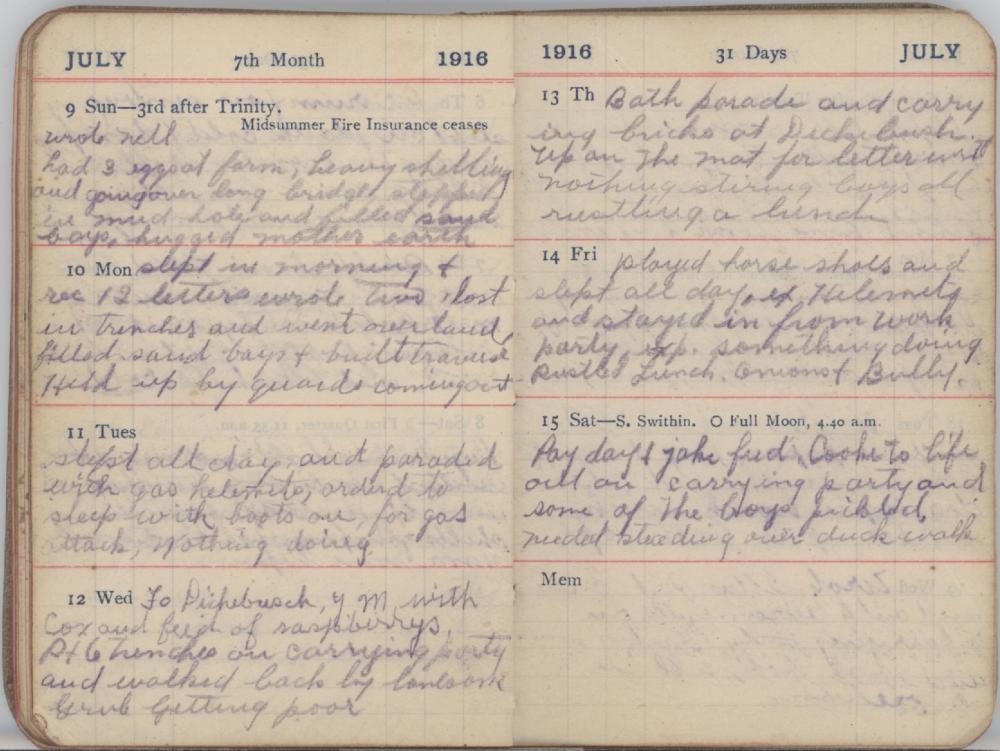 JULY 7th Month 1916
9 Sun—3rd after Trinity.
Midsummer Fire Insurance ceases
wrote nell
had 3 eggs at farm, heavy shelling
and going over long bridge, stepped
in mud hole and filled sand
bags, hugged mother earth
10 Mon slept in morning &
rec 12 letters wrote two, lost
in trenches and went overland,
filled sand bags & built traverse
Held up by guards coming out
11 Tues
slept all day, and paraded
with gas helemets, orderd to
sleep with boots on, for gas
attack, nothing doing
12 Wed To Dickebusch, Y M, with
Cox and feed of raspberrys,
trenches on carrying party
and walked back by lonesome
Grub Getting poor
1916 31 Days JULY
13 Th Bath parade and carry
ing bricks at Dickebush.
Up on the mat for letter writ
nothing stiring boys all
rustling a lunch
14 Fri played horse shoes and
slept all day, ex Helemets
and stayed in from work
party, exp. something doing
Rustled Lunch. Onions & Bully.
15 Sat—S. Swithin. O Full Moon, 4.40 a.m.
Pay day & jake feed, Cooke to life
out on carrying party and
some of the boys pickled,
needed steading over duck walk
Mem